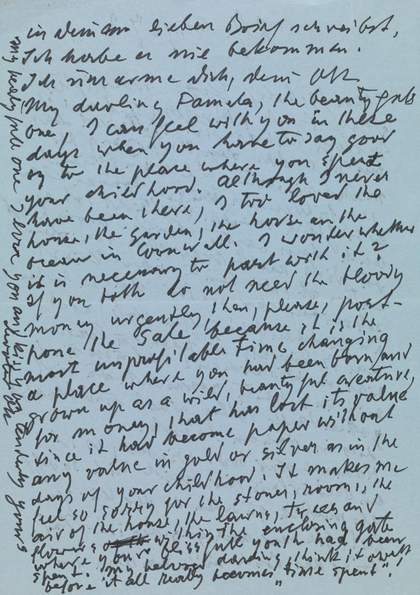 in deinem lieben Brief schreibst,
Ich habe er nie bekommen.
Ich umarme dich, dein OK
My darling Pamela, the beautyfull
one, I can feel with you in these
days when you have to say good
by to the place where you spent
your childhood. Although I never
have been there, I too loved the
house, the garden, the house on the
ocean in Cornwall. I wonder whether
it is necessary to part with it?
If you both do not need the bloody
money urgently, then, please, post-
pone the sale, because it is the
most unprofitable time, changing
a place where you had been born and
grown up as a wild, beautyful creature,
for money, that has lost its value
since it had become paper without
any value in gold or silver as in the
days of your childhood. It makes me
feel so sorry for the stones, rooms, the
air of the house, the lawns, trees and
flowers within the enclosing gate
where your blissfull youth had been
spent. My beloved darling, think it over
before it all really becomes "time spent"!
my beautyfull one I love you and kiss you tenderly yours